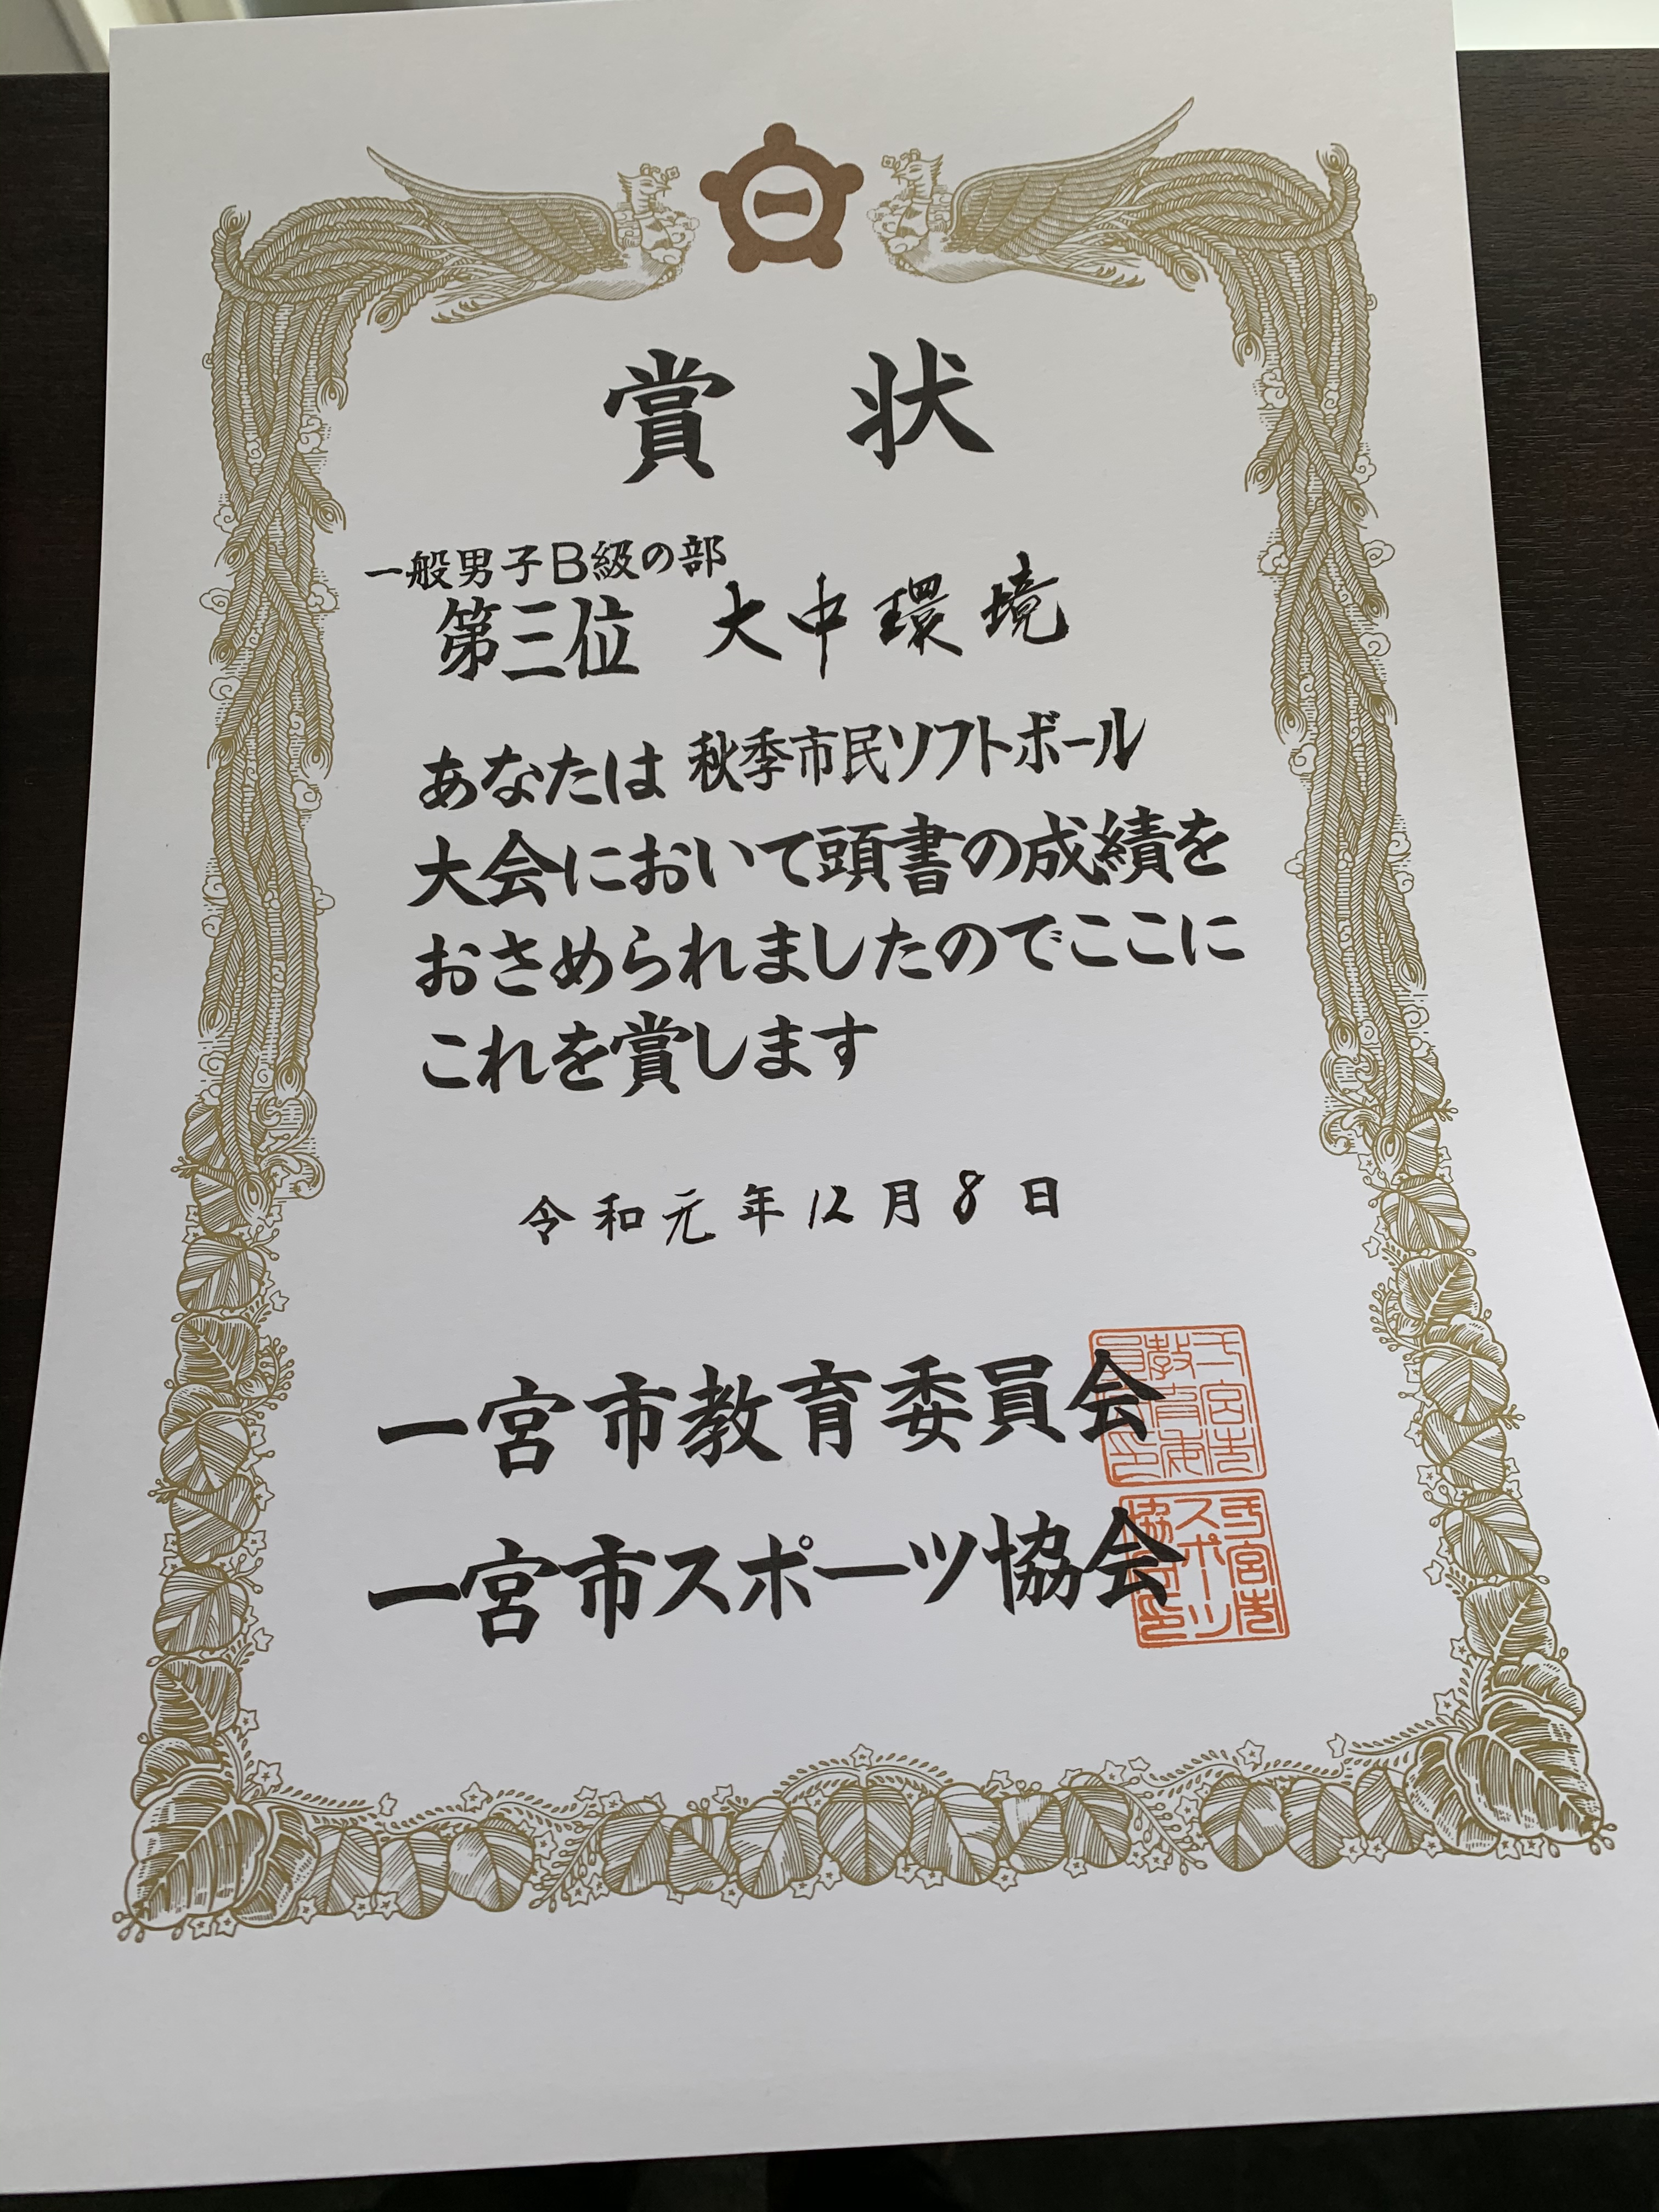 賞状
一般男子B級の部
第三位 大中環境
あなたは 秋季市民ソフトボール
大会において頭書の成績を
おさめられましたのでここに
これを賞します
令和元年12月8日
一宮市教育委員会
一宮市スポーツ協会